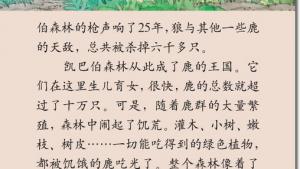 伯森林的枪声响了25年，狼与其他一些鹿
的天敌，总共被杀掉六千多只。
凯巴伯森林从此成了鹿的王国。它
们在这里生儿育女，很快，鹿的总数就超
过了十万只。可是，随着鹿群的大量繁
殖，森林中闹起了饥荒。灌木、小树、嫩
枝、树皮……一切能吃得到的绿色植物，
都被饥饿的鹿吃光了。整个森林像着了